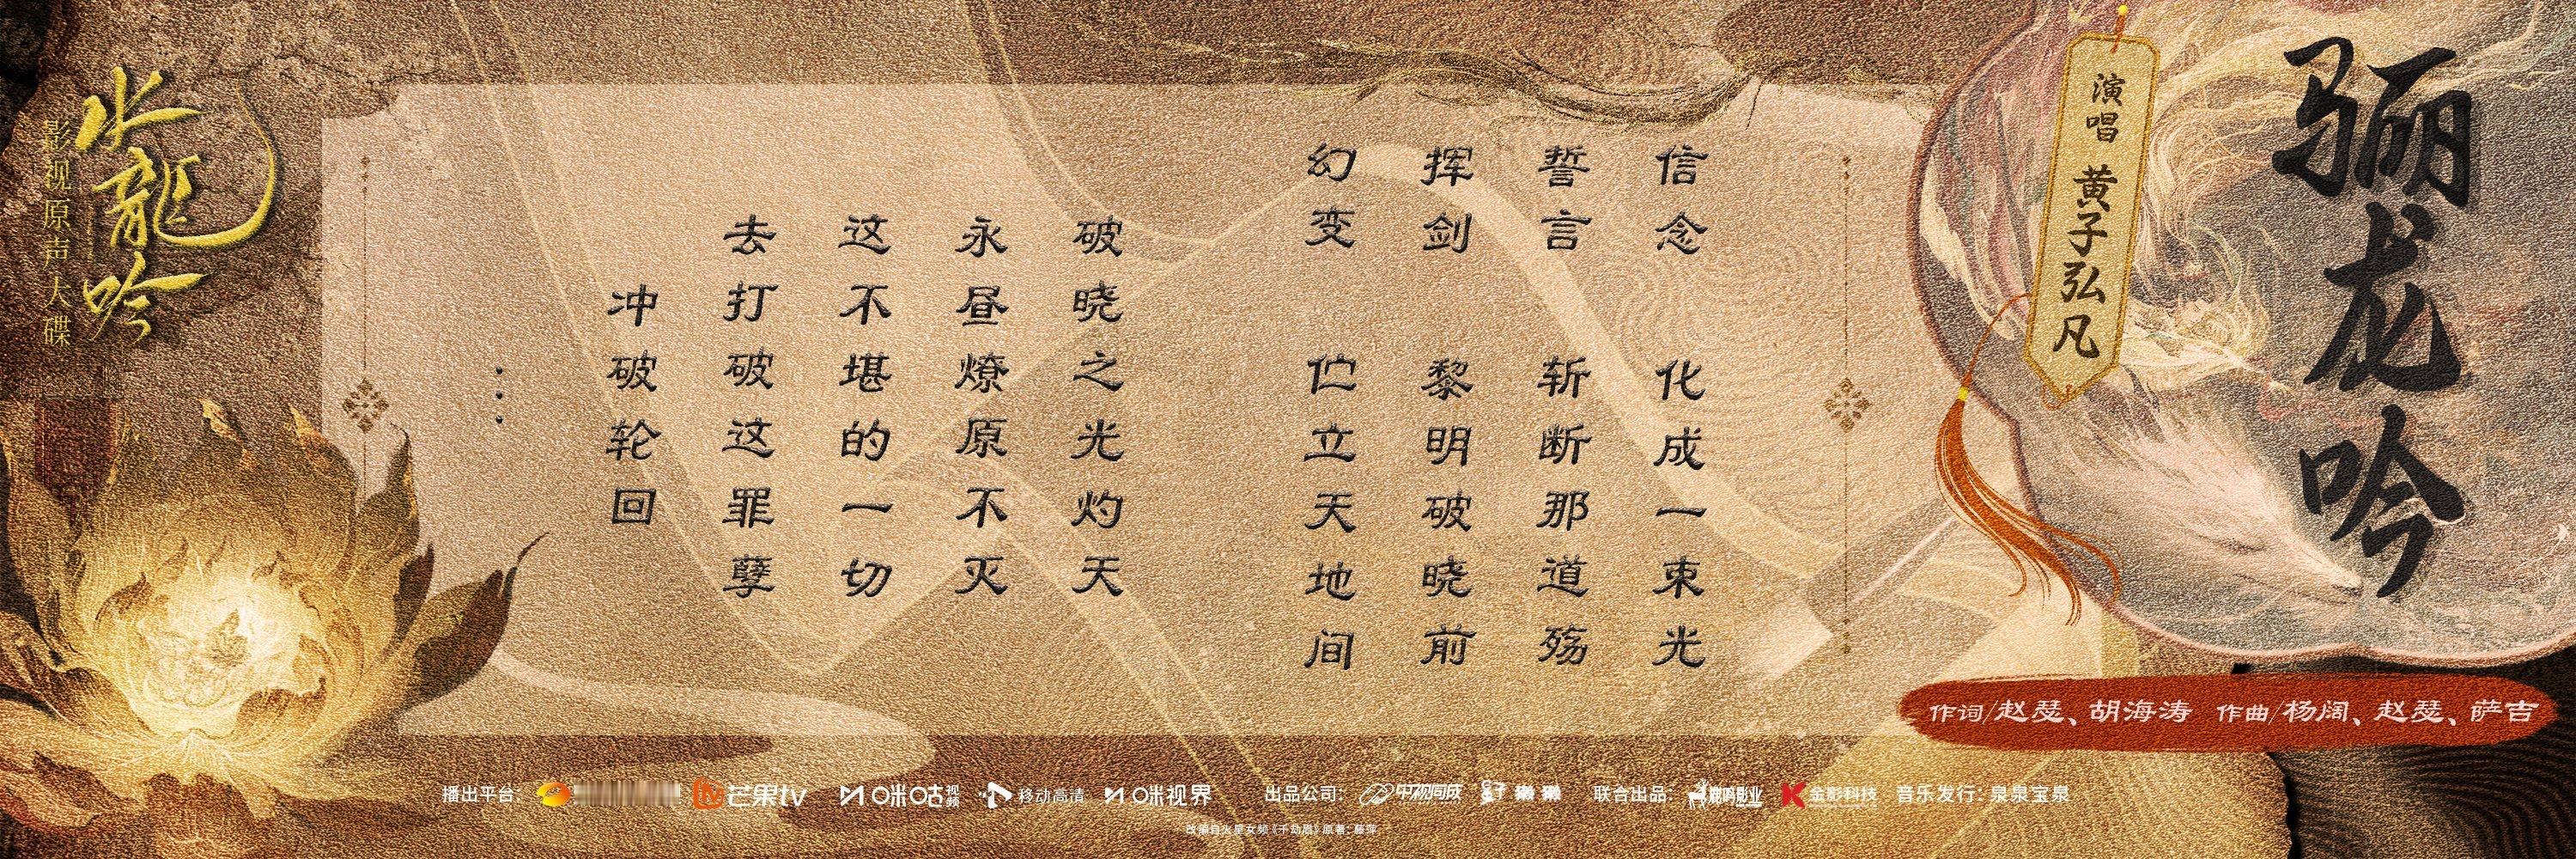 骊龙吟
演唱 黄子弘凡
作词/赵瑟、胡海涛 作曲/杨阔、赵瑟、萨吉
信念 化成一束光
誓言 斩断那道殇
挥剑 黎明破晓前
幻变 伫立天地间
破晓之光灼天
永昼燎原不灭
这不堪的一切
去打破这罪孽
冲破轮回
...
水龍吟
影视原声大碟
播出平台: 芒果tv 咪咕视频 移动高清 咪视界 出品公司: 中视同成 联合出品: 金影科技 音乐发行: 泉泉宝泉
改编自火星女频《千劫眉》原著: 藤萍